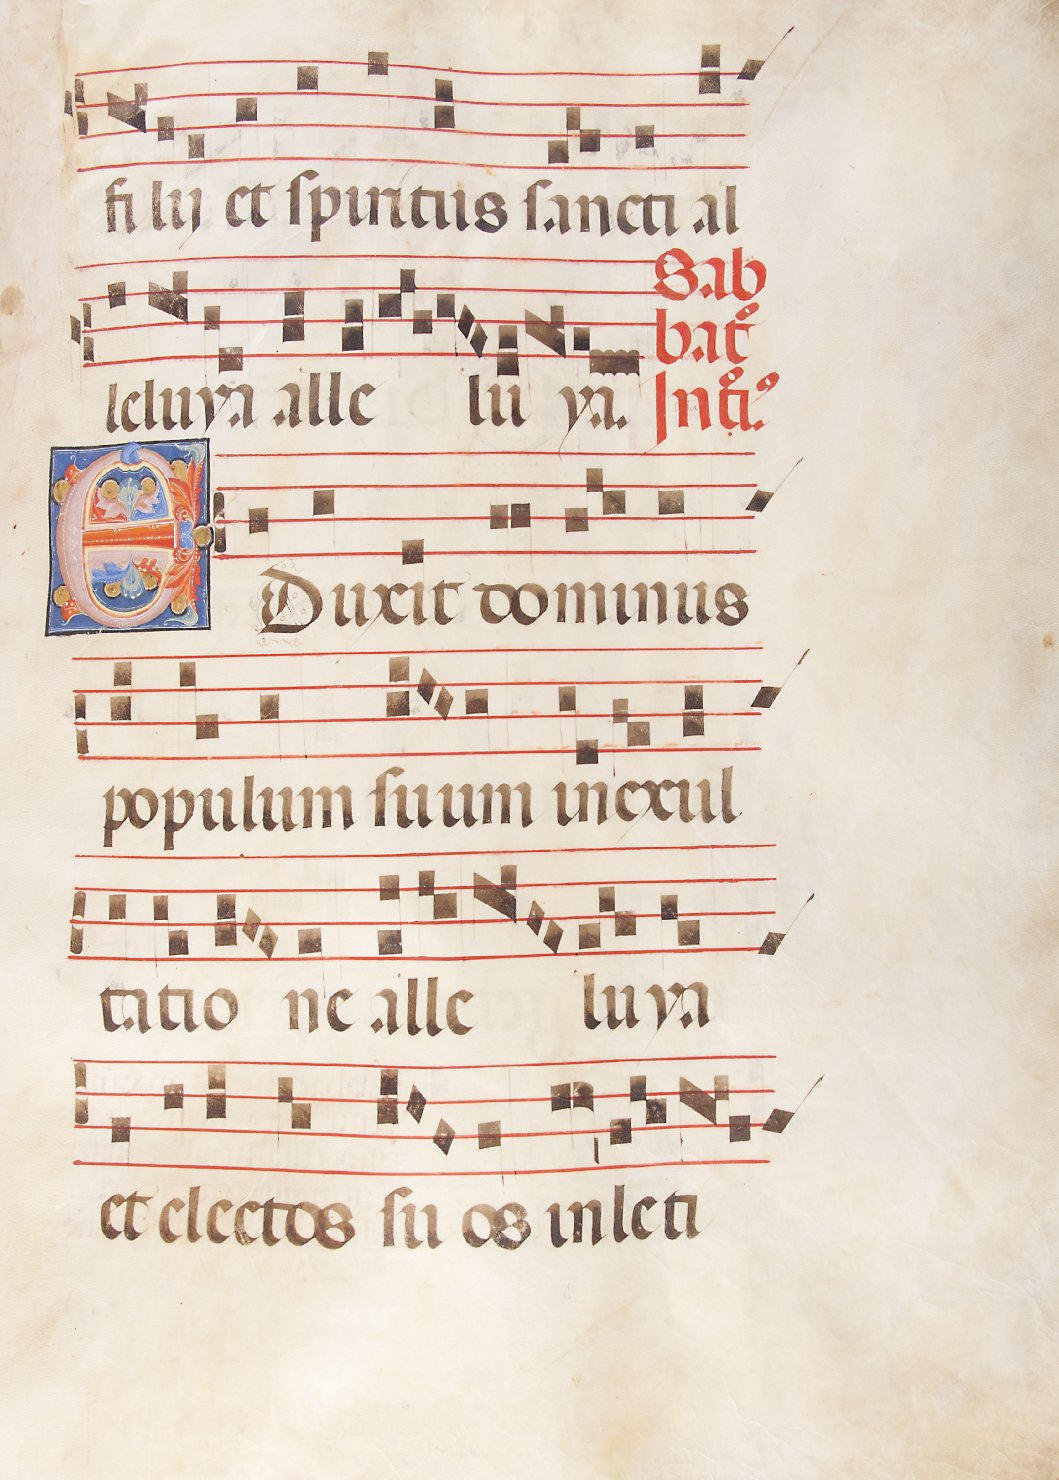 fi lij et spiritus sancti al
Sab
bato
leluya alle lu ya. Inti.
E Duxit dominus
populum suum in exul
tatio ne alle luya
et electos su os in leti